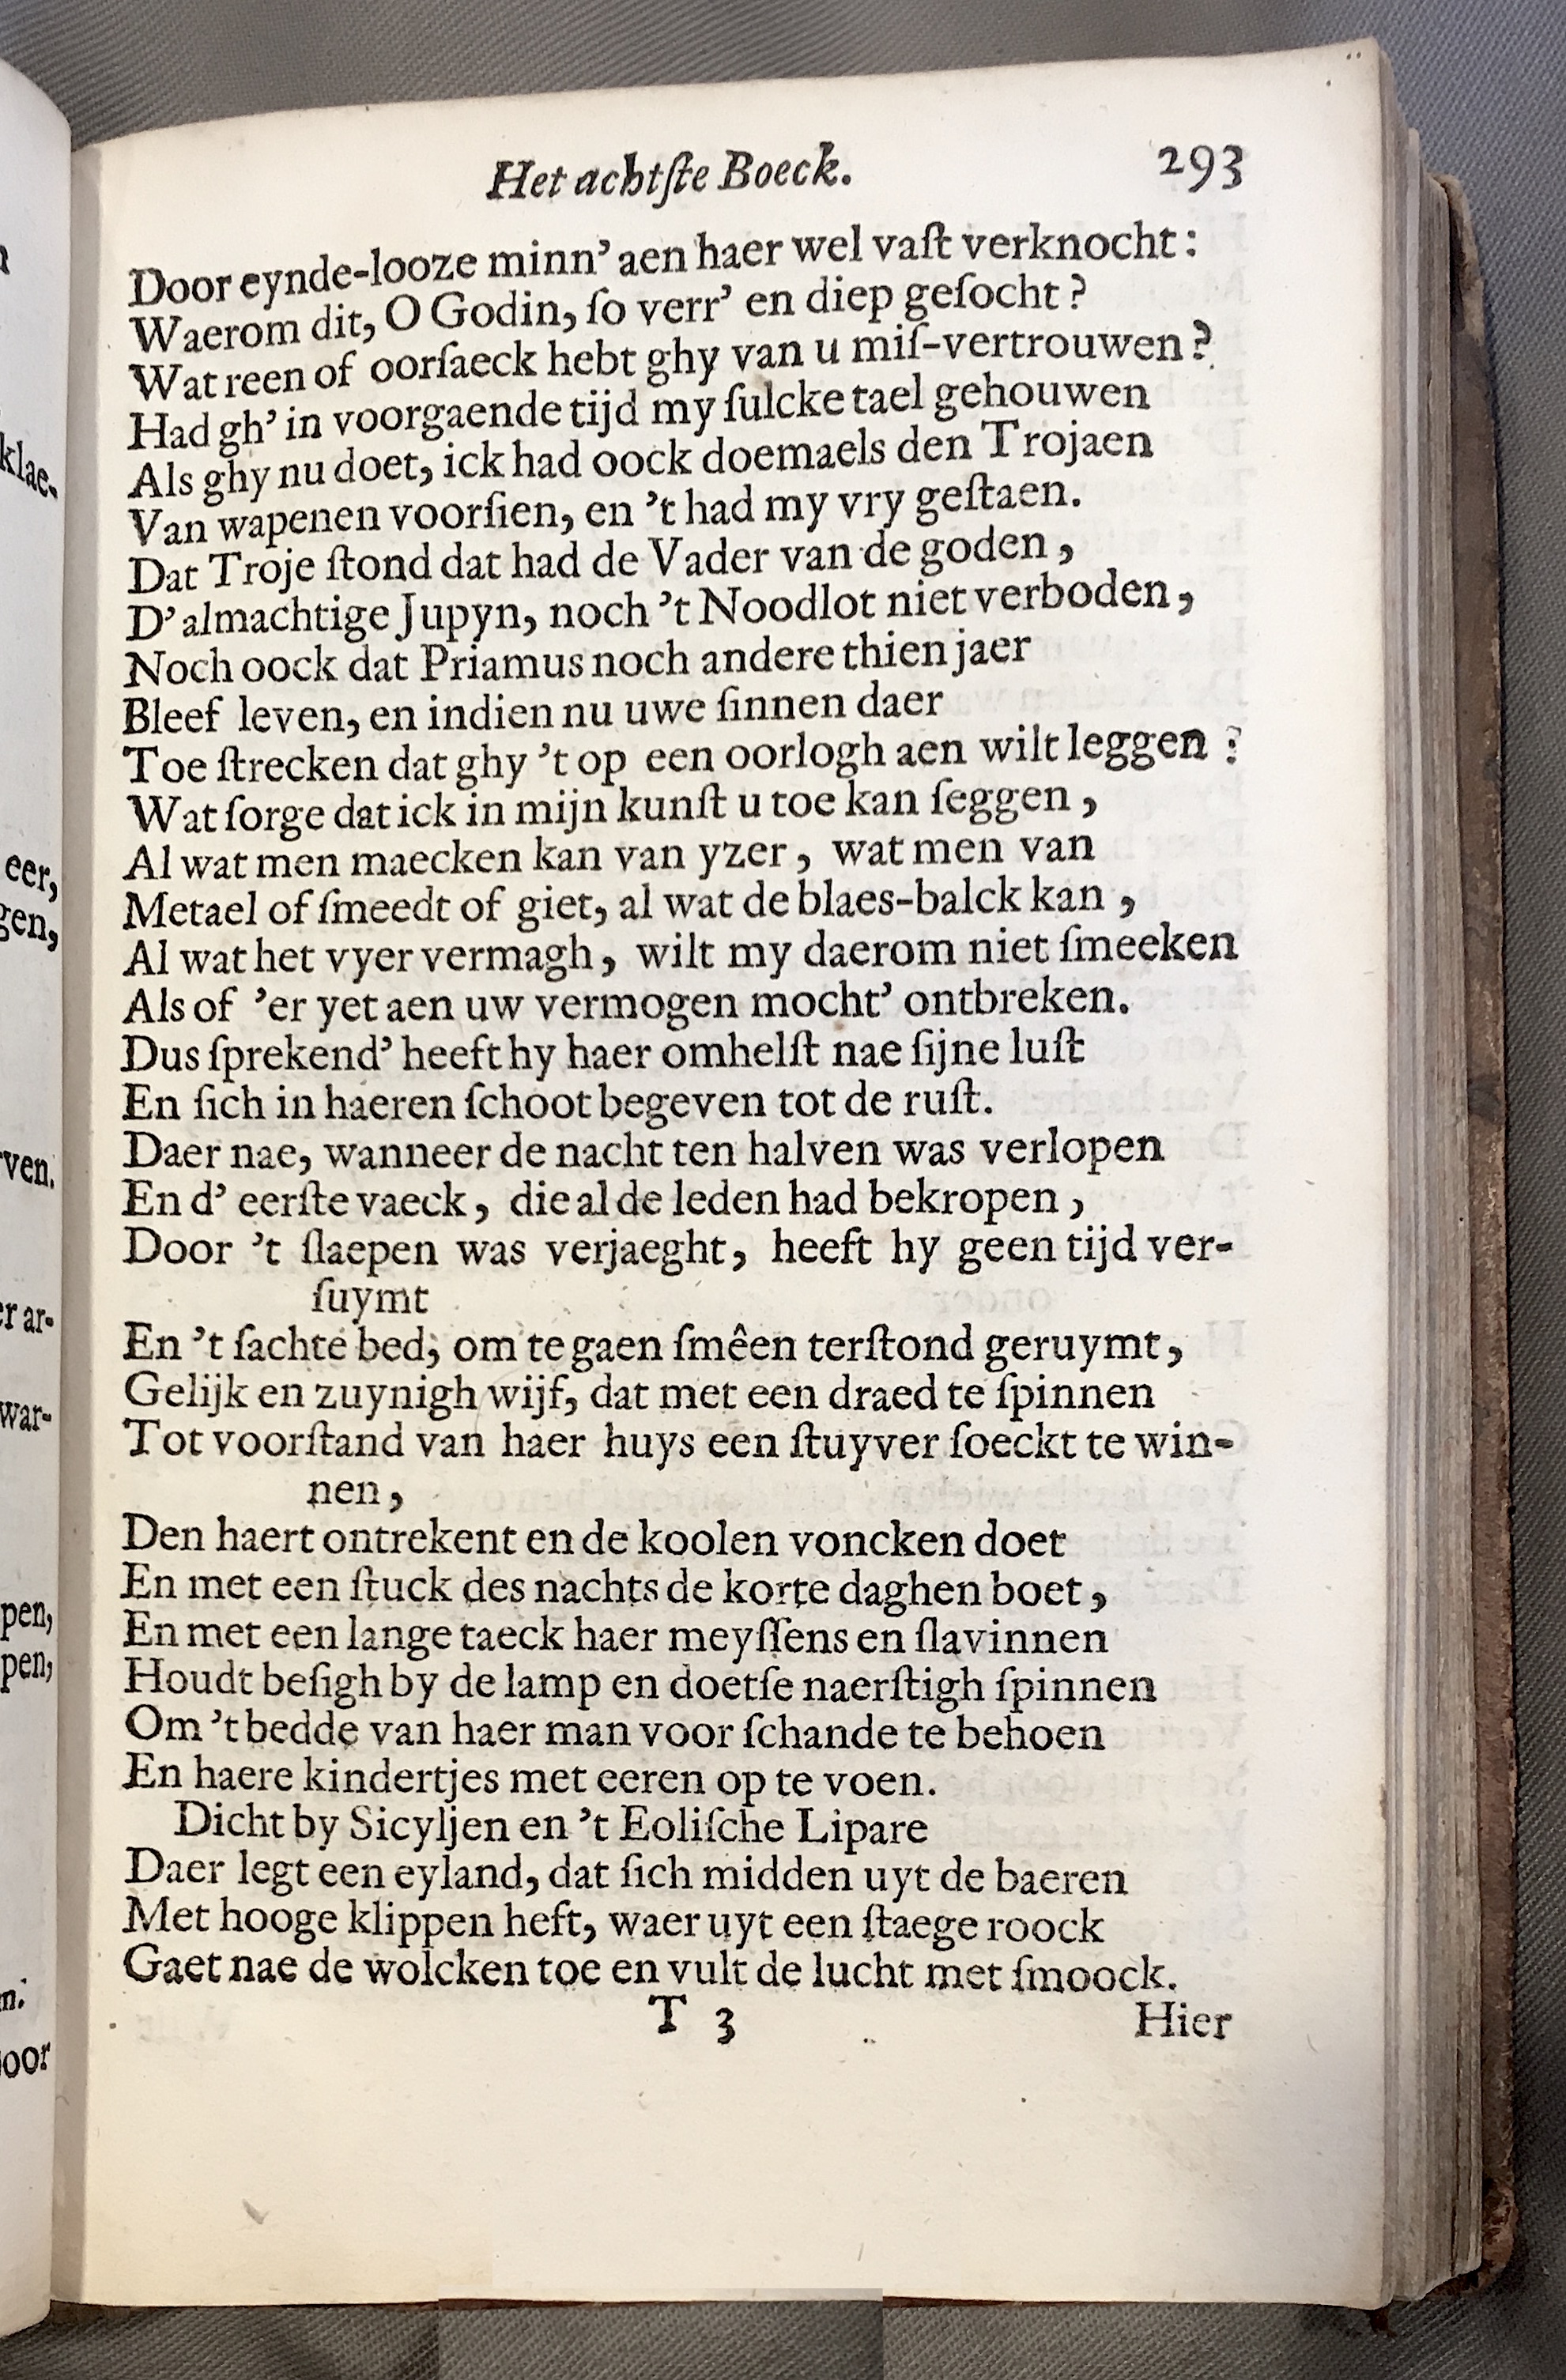 Het achtſte Boeck. 293
Door eynde-looze minn’ aen haer wel vaſt verknocht:
Waerom dit, O Godin, ſo verr’ en diep geſocht?
Wat reen of oorſaeck hebt ghy van u miſ-vertrouwen?
Had gh’ in voorgaende tijd my ſulcke tael gehouwen
Als ghy nu doet, ick had oock doemaels den Trojaen
Van wapenen voorſien, en ’t had my vry geſtaen.
Dat Troje ſtond dat had de Vader van de goden,
D’almachtige Jupyn, noch ’t Noodlot niet verboden,
Noch oock dat Priamus noch andere thien jaer
Bleef leven, en indien nu uwe ſinnen daer
Toe ſtrecken dat ghy ’t op een oorlogh aen wilt leggen?
Wat ſorge dat ick in mijn kunſt u toe kan ſeggen,
Al wat men maecken kan van yzer, wat men van
Metael of ſmeedt of giet, al wat de blaes-balck kan,
Al wat het vyer vermagh, wilt my daerom niet ſmeeken
Als of ’er yet aen uw vermogen mocht’ ontbreken.
Dus ſprekend’ heeft hy haer omhelſt nae ſijne luſt
En ſich in haeren ſchoot begeven tot de ruſt.
Daer nae, wanneer de nacht ten halven was verlopen
En d’ eerſte vaeck, die al de leden had bekropen,
Door ’t ſlaepen was verjaeght, heeft hy geen tijd ver-
ſuymt
En ’t ſachte bed; om te gaen ſmêen terſtond geruymt,
Gelijk en zuynigh wijf, dat met een draed te ſpinnen
Tot voorſtand van haer huys een ſtuyver ſoeckt te win-
nen,
Den haert ontrekent en de koolen voncken doet
En met een ſtuck des nachts de korte daghen boet,
En met een lange taeck haer meyſſens en ſlavinnen
Houdt beſigh by de lamp en doetſe naerſtigh ſpinnen
Om ’t bedde van haer man voor ſchande te behoen
En haere kindertjes met eeren op te voen.
Dicht by Sicyljen en ’t Eoliſche Lipare
Daer legt een eyland, dat ſich midden uyt de baeren
Met hooge klippen heft, waer uyt een ſtaege roock
Gaet nae de wolcken toe en vult de lucht met ſmoock.
T 3 Hier
klae-
eer,
gen,
ven.
er ar-
war-
pen,
pen,
oor